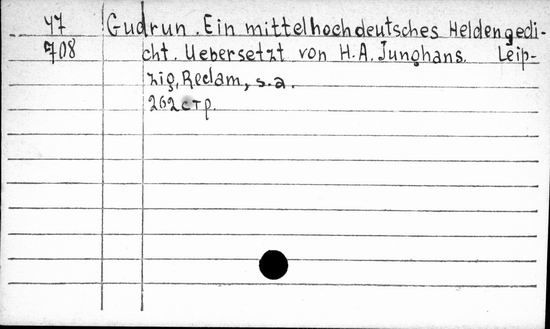 47 Gudrun. Ein mittelhochdeutsches Heldengedi-
708 cht. Uebersetzt von H. A. Junghans. Leip-
zig, Reclam, s.a.
262 стр.